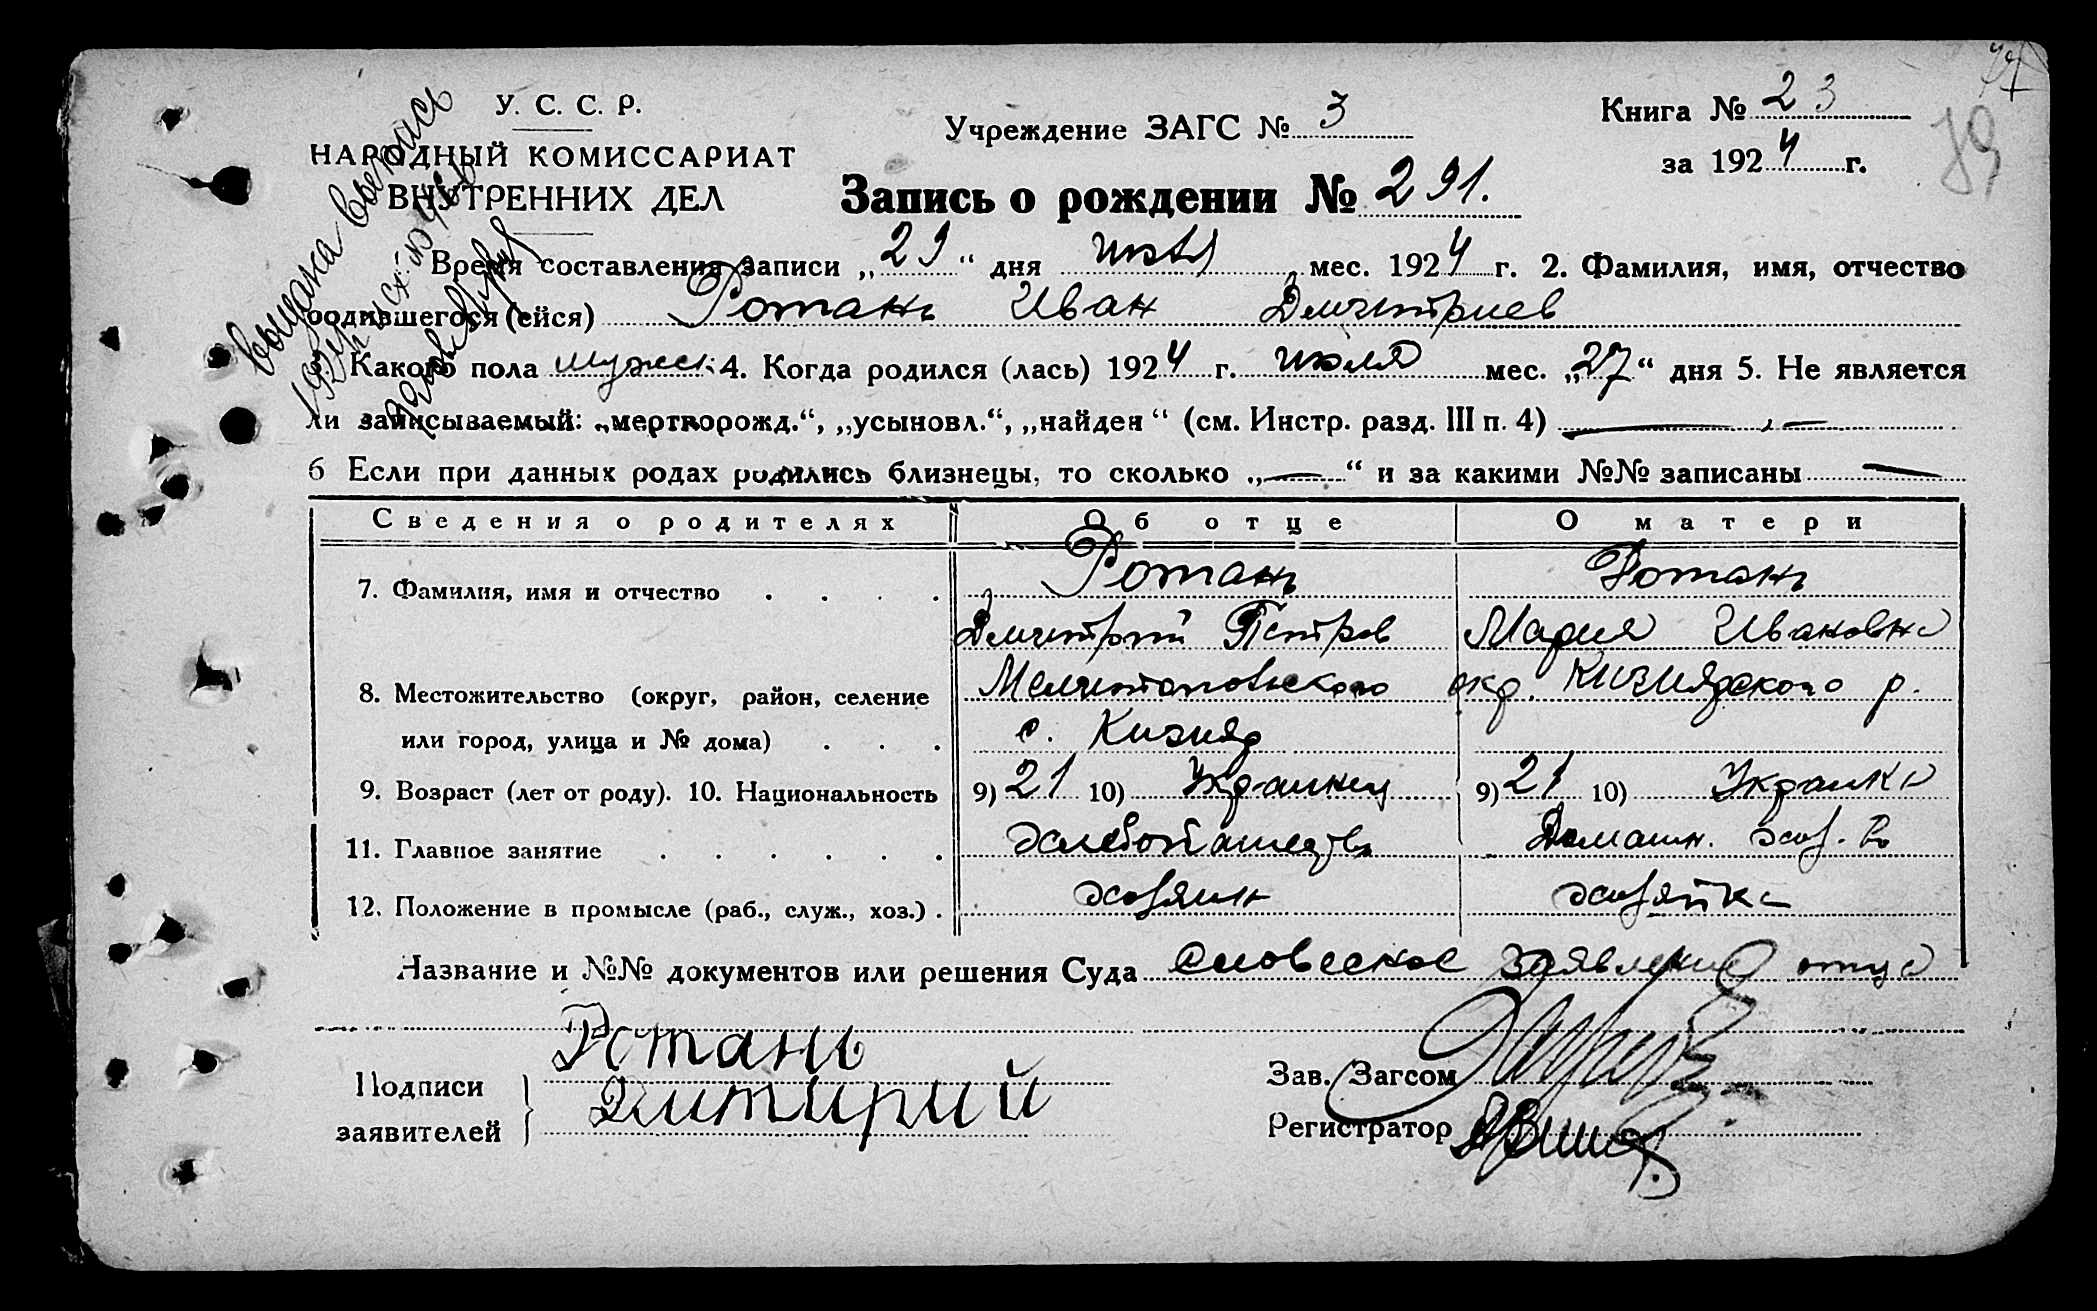 У. С. С. Р.
НАРОДНЫЙ КОМИССАРИАТ
ВНУТРЕННИХ ДЕЛ
Учреждение ЗАГС № 3
Книга № 23
за 1924 г.
79
Запись о рождении № 291.
Выдана выпись
Время составления записи „29“ дня июля мес. 1924 г. 2. Фамилия, имя, отчество
родившегося (ейся) Ротань Иван Дмитриев
Какого пола мужск. 4. Когда родился (лась) 1924 г. июля мес. „27“ дня 5. Не является
ли записываемый: „мертворожд.“, „усыновл.“, „найден“ (см. Инстр. разд. III п. 4) —
6 Если при данных родах родились близнецы, то сколько „—“ и за какими №№ записаны —
Сведения о родителях Об отце О матери
7. Фамилия, имя и отчество . . . . Ротань Ротань
Дмитрий Петров Мария Ивановна
8. Местожительство (округ, район, селение Мелитопольского окр. Кизиярского р.
или город, улица и № дома) . . . с. Кизияр
9. Возраст (лет от роду). 10. Национальность 9) 21 10) Украинец 9) 21 10) Украинка
11. Главное занятие . . . . . . хлебопашество Домашн. хоз. во
12. Положение в промысле (раб., служ., хоз.) . хозяин хозяйка
Название и №№ документов или решения Суда словесное заявление отца
Подписи заявителей } Ротань
Дмитирий
Зав. Загсом
Регистратор